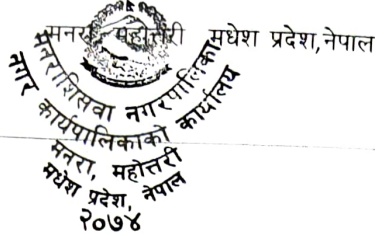 मनरा, महोत्तरी मधेश प्रदेश, नेपाल
मनराशिसवा नगरपालिका
नगर कार्यपालिकाको कार्यालय
मनरा, महोत्तरी
मधेश प्रदेश, नेपाल
२०७४